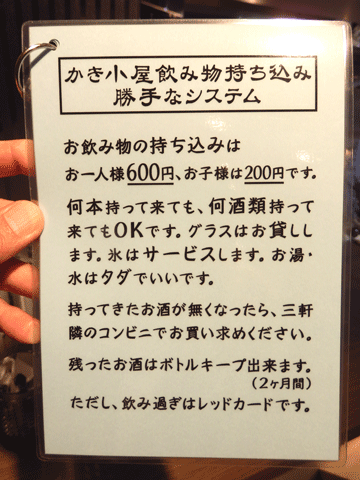 かき小屋飲み物持ち込み
勝手なシステム
お飲み物の持ち込みは
お一人様600円、お子様は200円です。
何本持って来ても、何酒類持って
来てもOKです。グラスはお貸しし
ます。氷はサービスします。お湯・
水はタダでいいです。
持ってきたお酒が無くなったら、三軒
隣のコンビニでお買い求めください。
残ったお酒はボトルキープ出来ます。
(2ヶ月間)
ただし、飲み過ぎはレッドカードです。